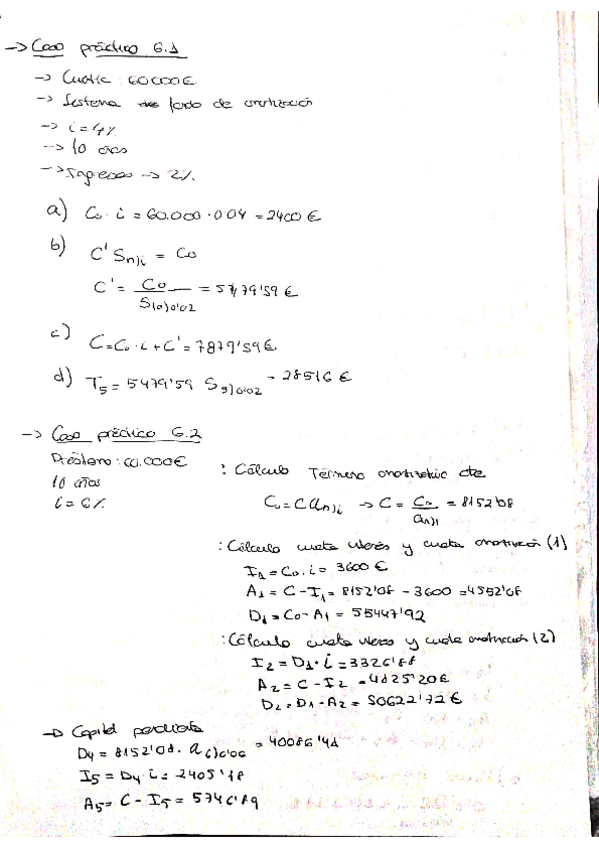 -> Caso práctico 6.1
-> Cuantía: 60000€
-> Sistema fondo de amortización
-> i=4%
-> 10 años
-> Ingresos -> 2%
a) C₀·i = 60.000·0'04 = 2400 €
b) C' Sn|i = C₀
C' = C₀ / S10|0'02 = 5479'59 €
c) C = C₀·i + C' = 7879'59€
d) T₅ = 5479'59 S5|0'02 = 28516 €
-> Caso práctico 6.2
Préstamo: 60.000€
10 años
i = 6%
: Cálculo Término amortizativo cte
C₀ = C an|i -> C = C₀ / an|i = 8152'08
: Cálculo cuota interés y cuota amortización (1)
I₁ = C₀·i = 3600 €
A₁ = C - I₁ = 8152'08 - 3600 = 4552'08
D₁ = C₀ - A₁ = 55447'92
: Cálculo cuota interés y cuota amortización (2)
I₂ = D₁·i = 3326'88
A₂ = C - I₂ = 4825'20€
D₂ = D₁ - A₂ = 50622'72 €
-> Capital pendiente
D₄ = 8152'08 · a6|0'06 = 40086'48
I₅ = D₄·i = 2405'18
A₅ = C - I₅ = 5746'89